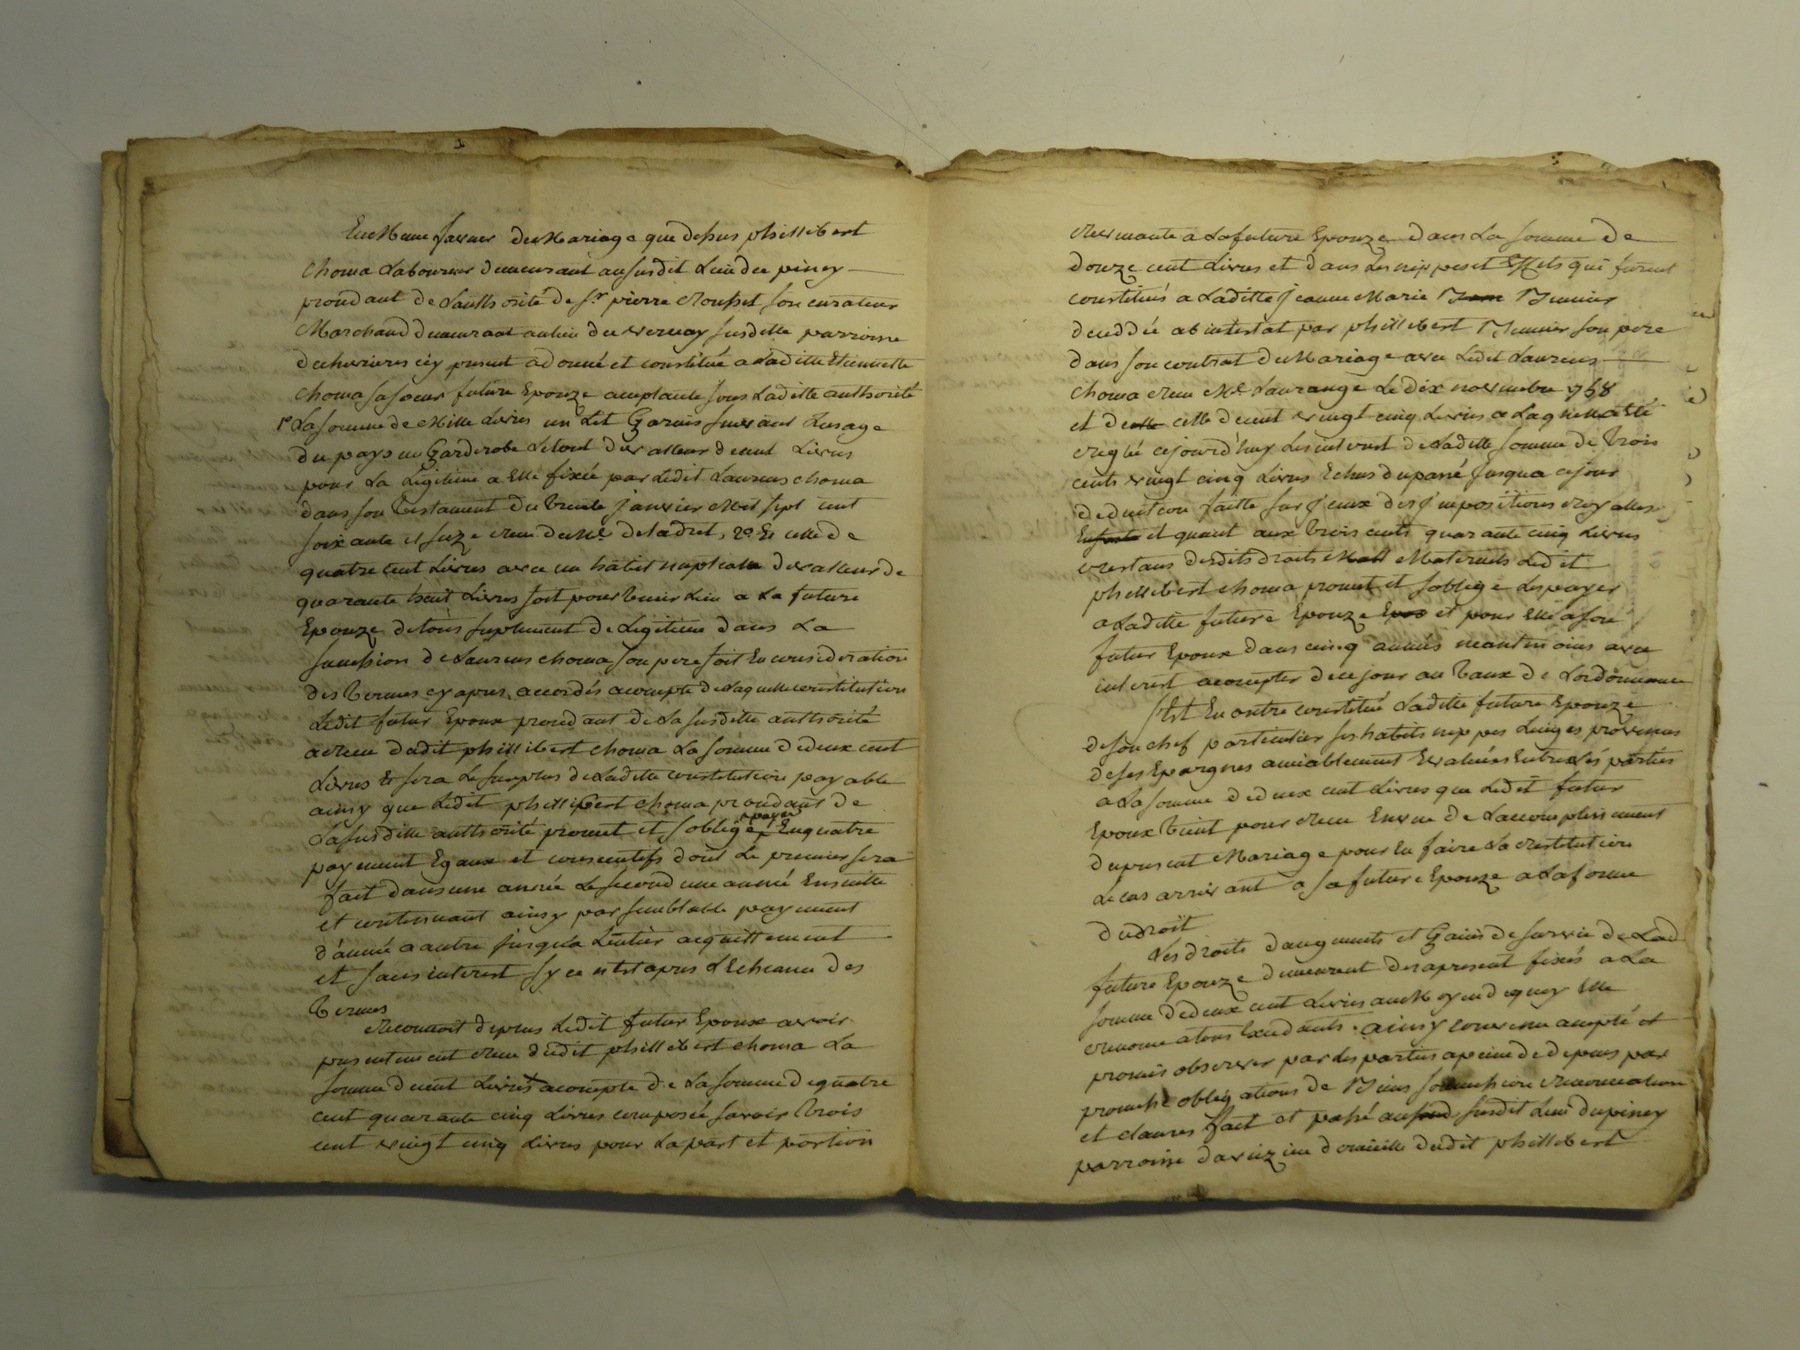 En Meme faveur de Mariage que dessus phillibert
Choma Laboureur demeurant au susdit Lieu du piney
procedant de Lauthorité de Sr pierre Rousset son curateur
Marchand demeurant au lieu du vernay susditte parroisse
de chevrieres icy present a donné et constitué a Laditte Etiennette
Choma sa soeur future Epouze acceptante sous Laditte authorité
1° La somme de Mille Livres un Lit Garnis suivant Lusage
du pays un Garderobe Letout de valleur de cent Livres
pour La Légitime a Elle fixée par Ledit Laurens choma
dans son Testament du Trente Janvier Mil sept cent
soixante et seize reçu de Me deladret, 2° Et celle de
quatre cent Livres avec un habit nuptial de valleur de
quarante huit Livres soit pour tenir Lieu a La future
Epouze de tous suplement de Légitime dans La
succession de Laurens choma son pere soit En consideration
des Termes cy apres accordés acompte de Laquelle constitution
Ledit futur Epoux procedant de La susditte authorité
a reçu dudit phillibert choma La somme de deux cent
Livres Et sera Le surplus de Laditte constitution payable
ainsy que Ledit phillibert choma procedant de
La susditte authorité promet et soblige a payer En quatre
payement Egaux et consecutifs dont Le premier sera
fait dans une année Le second une année Ensuitte
et continuant ainsy par semblable payement
d'année a autre jusqu'a Lentier acquittement
et sans interest sy ce n'est apres L'Echeance des
Termes
Reconnoit de plus Ledit futur Epoux avoir
presentement reçu dudit phillibert choma La
somme de cent Livres acompte de La somme de quatre
cent quarante cinq Livres composée savoir Trois
cent vingt cinq Livres pour La part et portion
revenante a La future Epouze dans La somme de
douze cent Livres et dans Les nippes et Effets qui furent
constitués a Laditte jeanne Marie Bunier
decedée abintestat par phillibert Bunier son pere
dans son contrat de Mariage avec Ledit Laurens
Choma reçu Me Laurange Le dix novembre 1758
et de celle de cent vingt cinq Livres a Laquelle a Eté
reglé cejourd'huy Les interest de Laditte somme de Trois
cents vingt cinq Livres Echus du passé jusqua ce jour
deduction faitte sur jceux des jmpositions royalles
et quant aux Trois cents quarante cinq Livres
restans desdits droits Maternels Ledit
phillibert choma promet et soblige Les payer
a Laditte future Epouze et pour Elle a son
futur Epoux dans cinq années neantmoins avec
interest acompter de ce jour au Taux de Lordonnance
S'Est En outre constitué Laditte future Epouze
de son chef particulier ses habits nippes Linges provenus
de ses Epargnes amiablement Evaluées Entre Les parties
a La somme de deux cent Livres que Ledit futur
Epoux Tient pour reçu En vue de Laccomplissement
du present Mariage pour En faire La restitution
Le cas arrivant a sa future Epouze a La forme
du droit
Les droits daugments et Gains de survie de Lad
future Epouze demeurent des apresent fixés a La
somme de deux cent Livres au Moyen de quoy Elle
renonce a tous Excedants. ainsy convenu accepté et
promis observer par Les parties a peine de depens par
promesse obligations de Biens soumission renonciation
et clauses fait et passé au susdit Lieu du piney
parroisse daveizieu domicille dudit phillibert